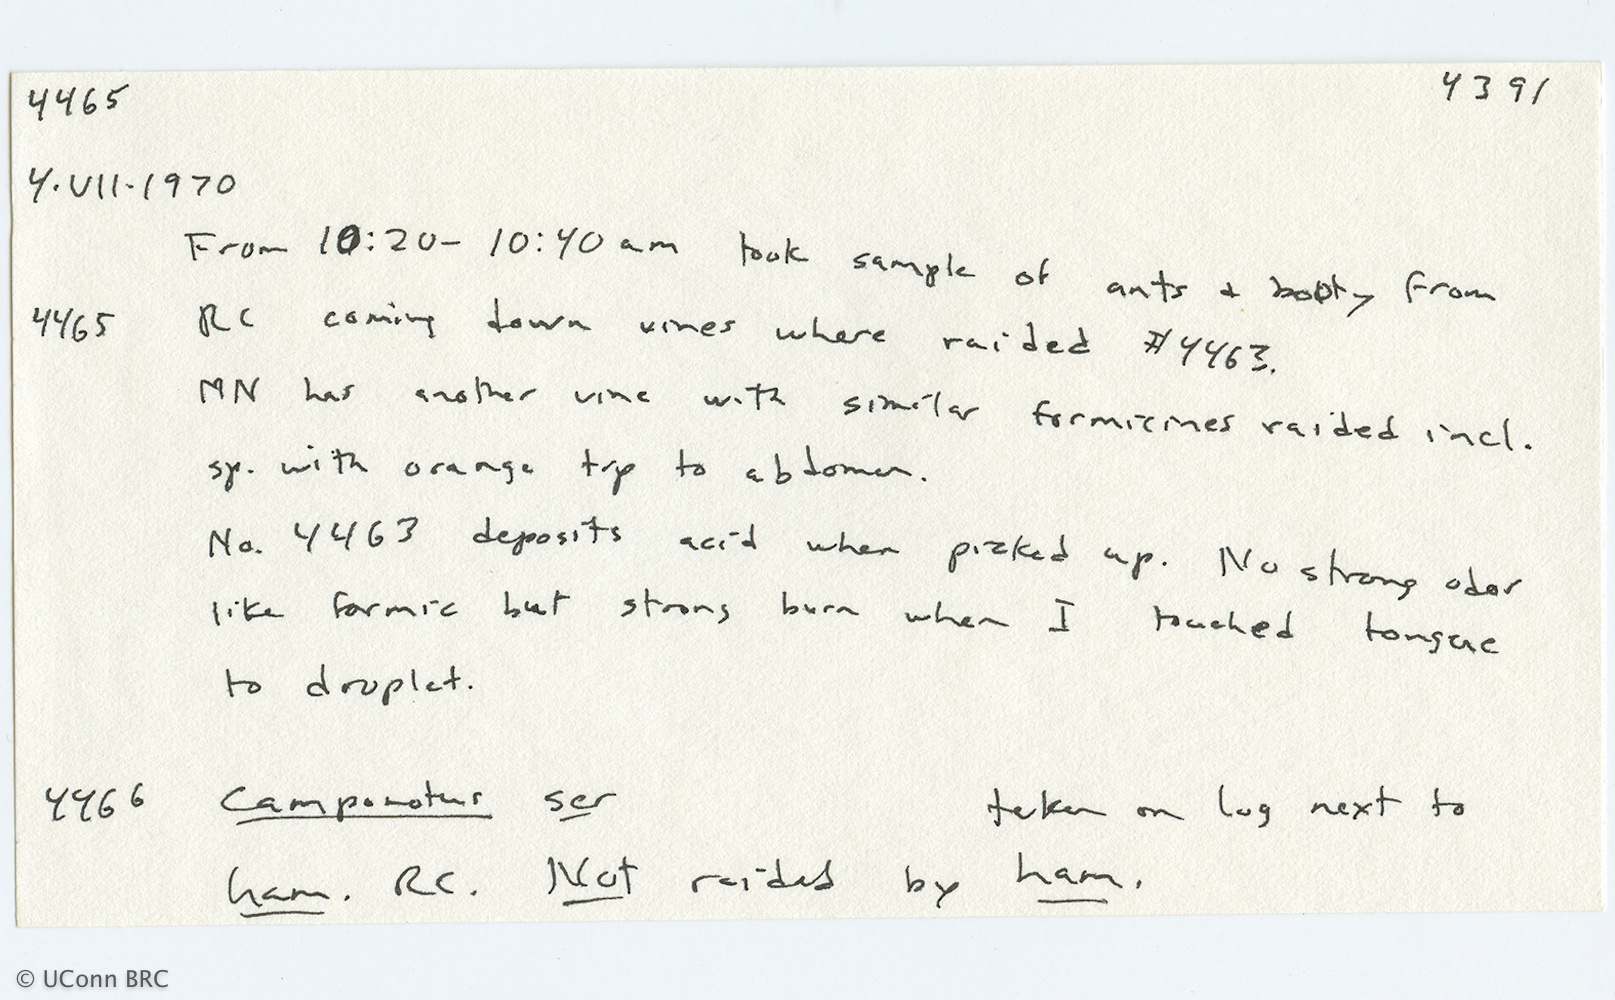 4465 4391
4.VII.1970
From 10:20-10:40 am took sample of ants & booty from
4465 RC coming down vines where raided #4463.
MN has another vine with similar formicines raided incl.
sp. with orange tip to abdomen.
No. 4463 deposits acid when picked up. No strong odor
like formic but strong burn when I touched tongue
to droplet.
4466 Camponotus ser taken on log next to
ham. RC. Not raided by ham.
© UConn BRC